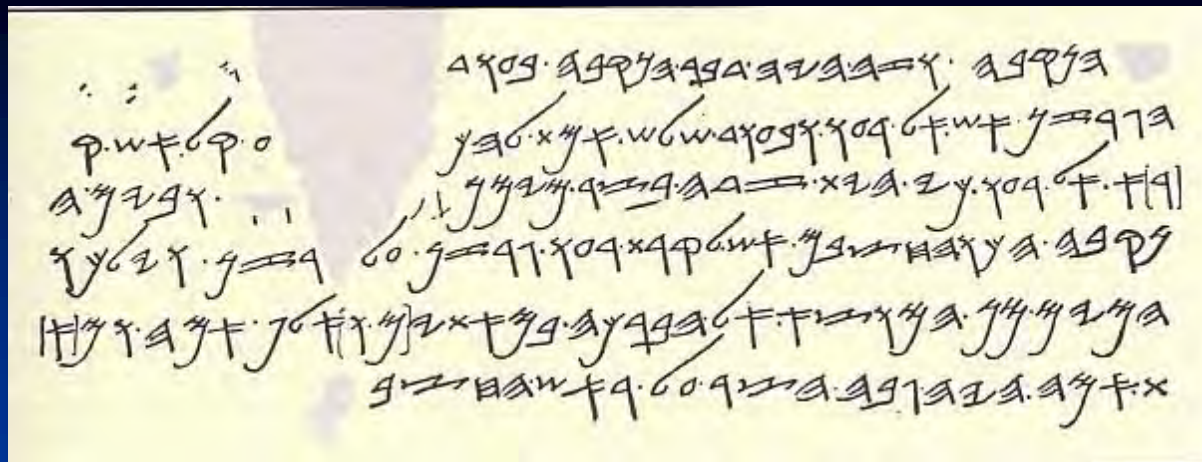 𐤄𐤍𐤒𐤁𐤄·𐤅𐤆𐤄·𐤄𐤉𐤄·𐤃𐤁𐤓·𐤄𐤍𐤒𐤁𐤄·𐤁𐤏𐤅𐤃
𐤄𐤂𐤓𐤆𐤍·𐤀𐤔·𐤀𐤋·𐤓𐤏𐤅·𐤅𐤁𐤏𐤅𐤃·𐤔𐤋𐤔·𐤀𐤌𐤕·𐤋𐤄𐤍 𐤏·𐤒𐤋·𐤀𐤔·𐤒
[𐤓]𐤀·𐤀𐤋·𐤓𐤏𐤅·𐤊𐤉·𐤄𐤉𐤕·𐤆𐤃𐤄·𐤁𐤑𐤓·𐤌𐤉𐤌𐤍 ·𐤅𐤁𐤉𐤌·𐤄
𐤍𐤒𐤁𐤄·𐤄𐤊𐤅·𐤄𐤇𐤑𐤁𐤌·𐤀𐤔·𐤋𐤒𐤓𐤕·𐤓𐤏𐤅·𐤂𐤓𐤆𐤍·𐤏𐤋 𐤓𐤆𐤍·𐤅𐤉𐤋𐤊𐤅
𐤄𐤌𐤉𐤌·𐤌𐤍·𐤄𐤌𐤅𐤑𐤀·𐤀𐤋·𐤄𐤁𐤓𐤊𐤄·𐤁𐤌𐤀𐤕𐤉[𐤌·𐤅]𐤀𐤋𐤐·𐤀𐤌𐤄·𐤅𐤌[𐤀]
𐤕·𐤀𐤌𐤄·𐤄𐤉𐤄·𐤂𐤁𐤄·𐤄𐤑𐤓·𐤏𐤋·𐤓𐤀𐤔·𐤄𐤇𐤑𐤁